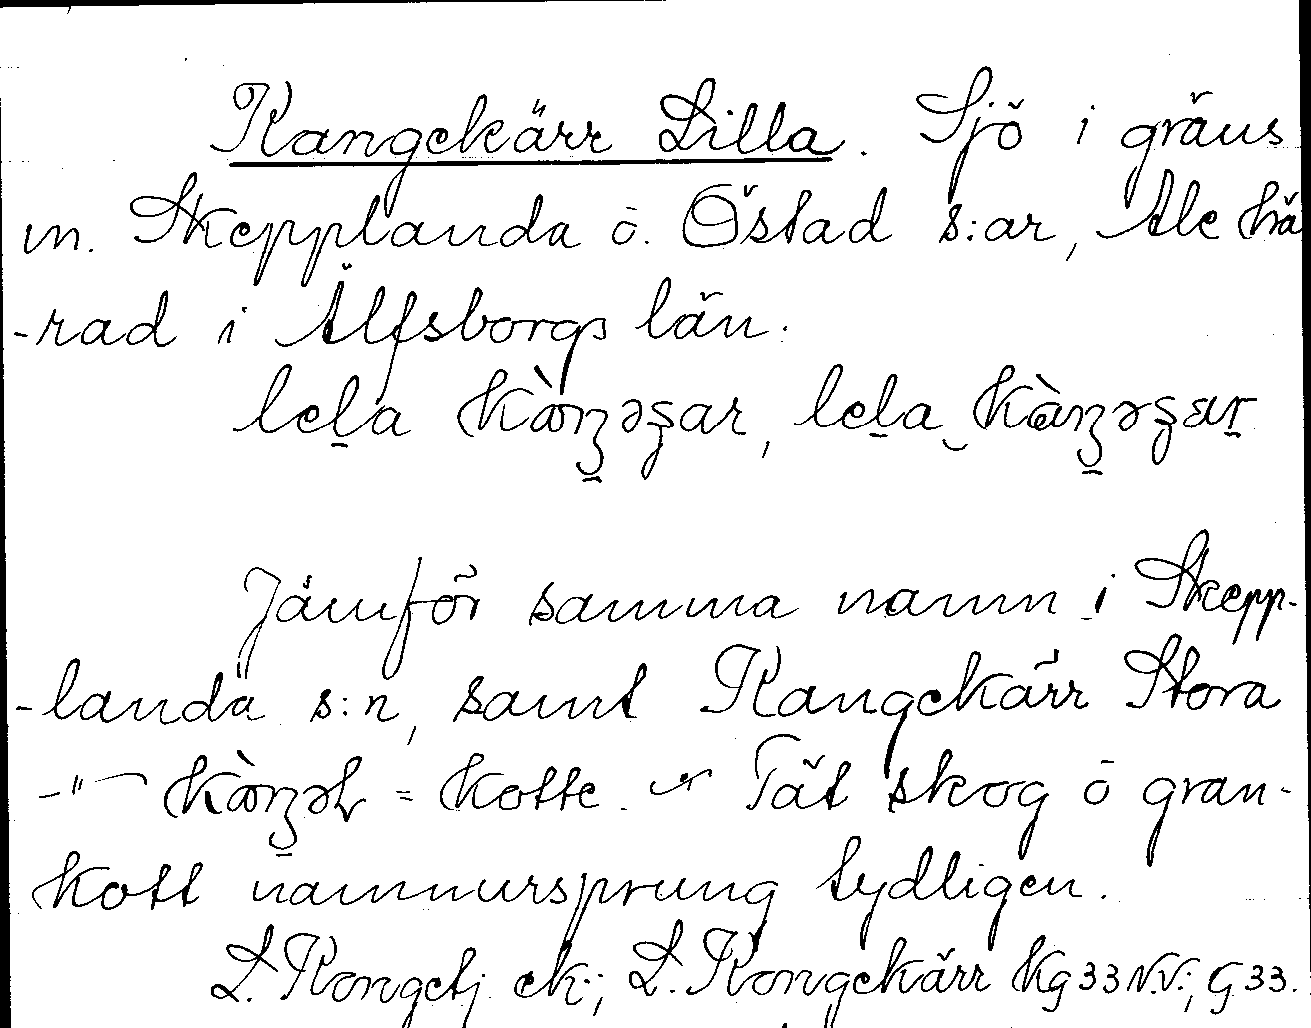 Kangekärr Lilla. Sjö i gräns
m. Skepplanda o. Östad s:ar, Ale hä
-rad i Älfsborgs län.
Jämför samma namn i Skepp-
-landa s:n, samt Kangekärr Stora
-"- = Kotte. Tät skog o gran-
kott namnursprung tydligen.
L. Kongetj. ek.; L. Kongekärr Kg 33 N.V.; G 33.